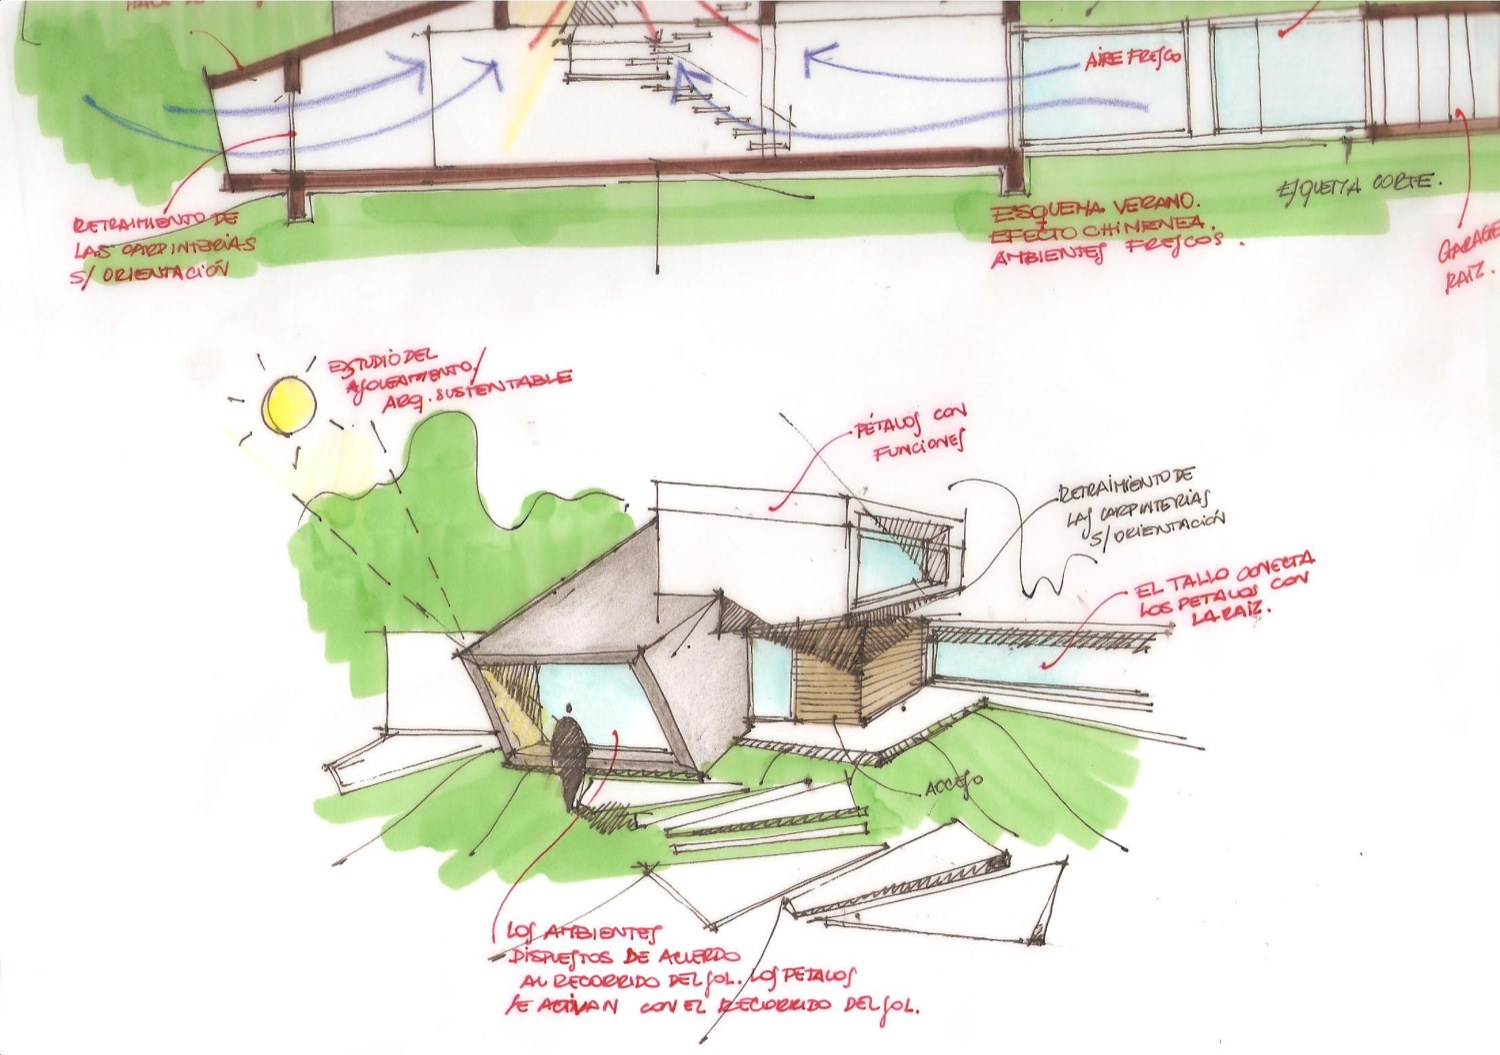 AIRE FRESCO
ESQUEMA CORTE.
RETRAIMIENTO DE
LAS CARPINTERIAS
S/ ORIENTACIÓN
ESQUEMA VERANO.
EFECTO CHIMENEA.
AMBIENTES FRESCOS.
GARAGE
RAIZ.
ESTUDIO DEL
ASOLEAMIENTO/
ARQ. SUSTENTABLE
PÉTALOS CON
FUNCIONES
RETRAIMIENTO DE
LAS CARPINTERIAS
S/ ORIENTACIÓN
EL TALLO CONECTA
LOS PETALOS CON
LA RAIZ.
ACCESO
LOS AMBIENTES
DISPUESTOS DE ACUERDO
AL RECORRIDO DEL SOL. LOS PETALOS
SE ACTIVAN CON EL RECORRIDO DEL SOL.